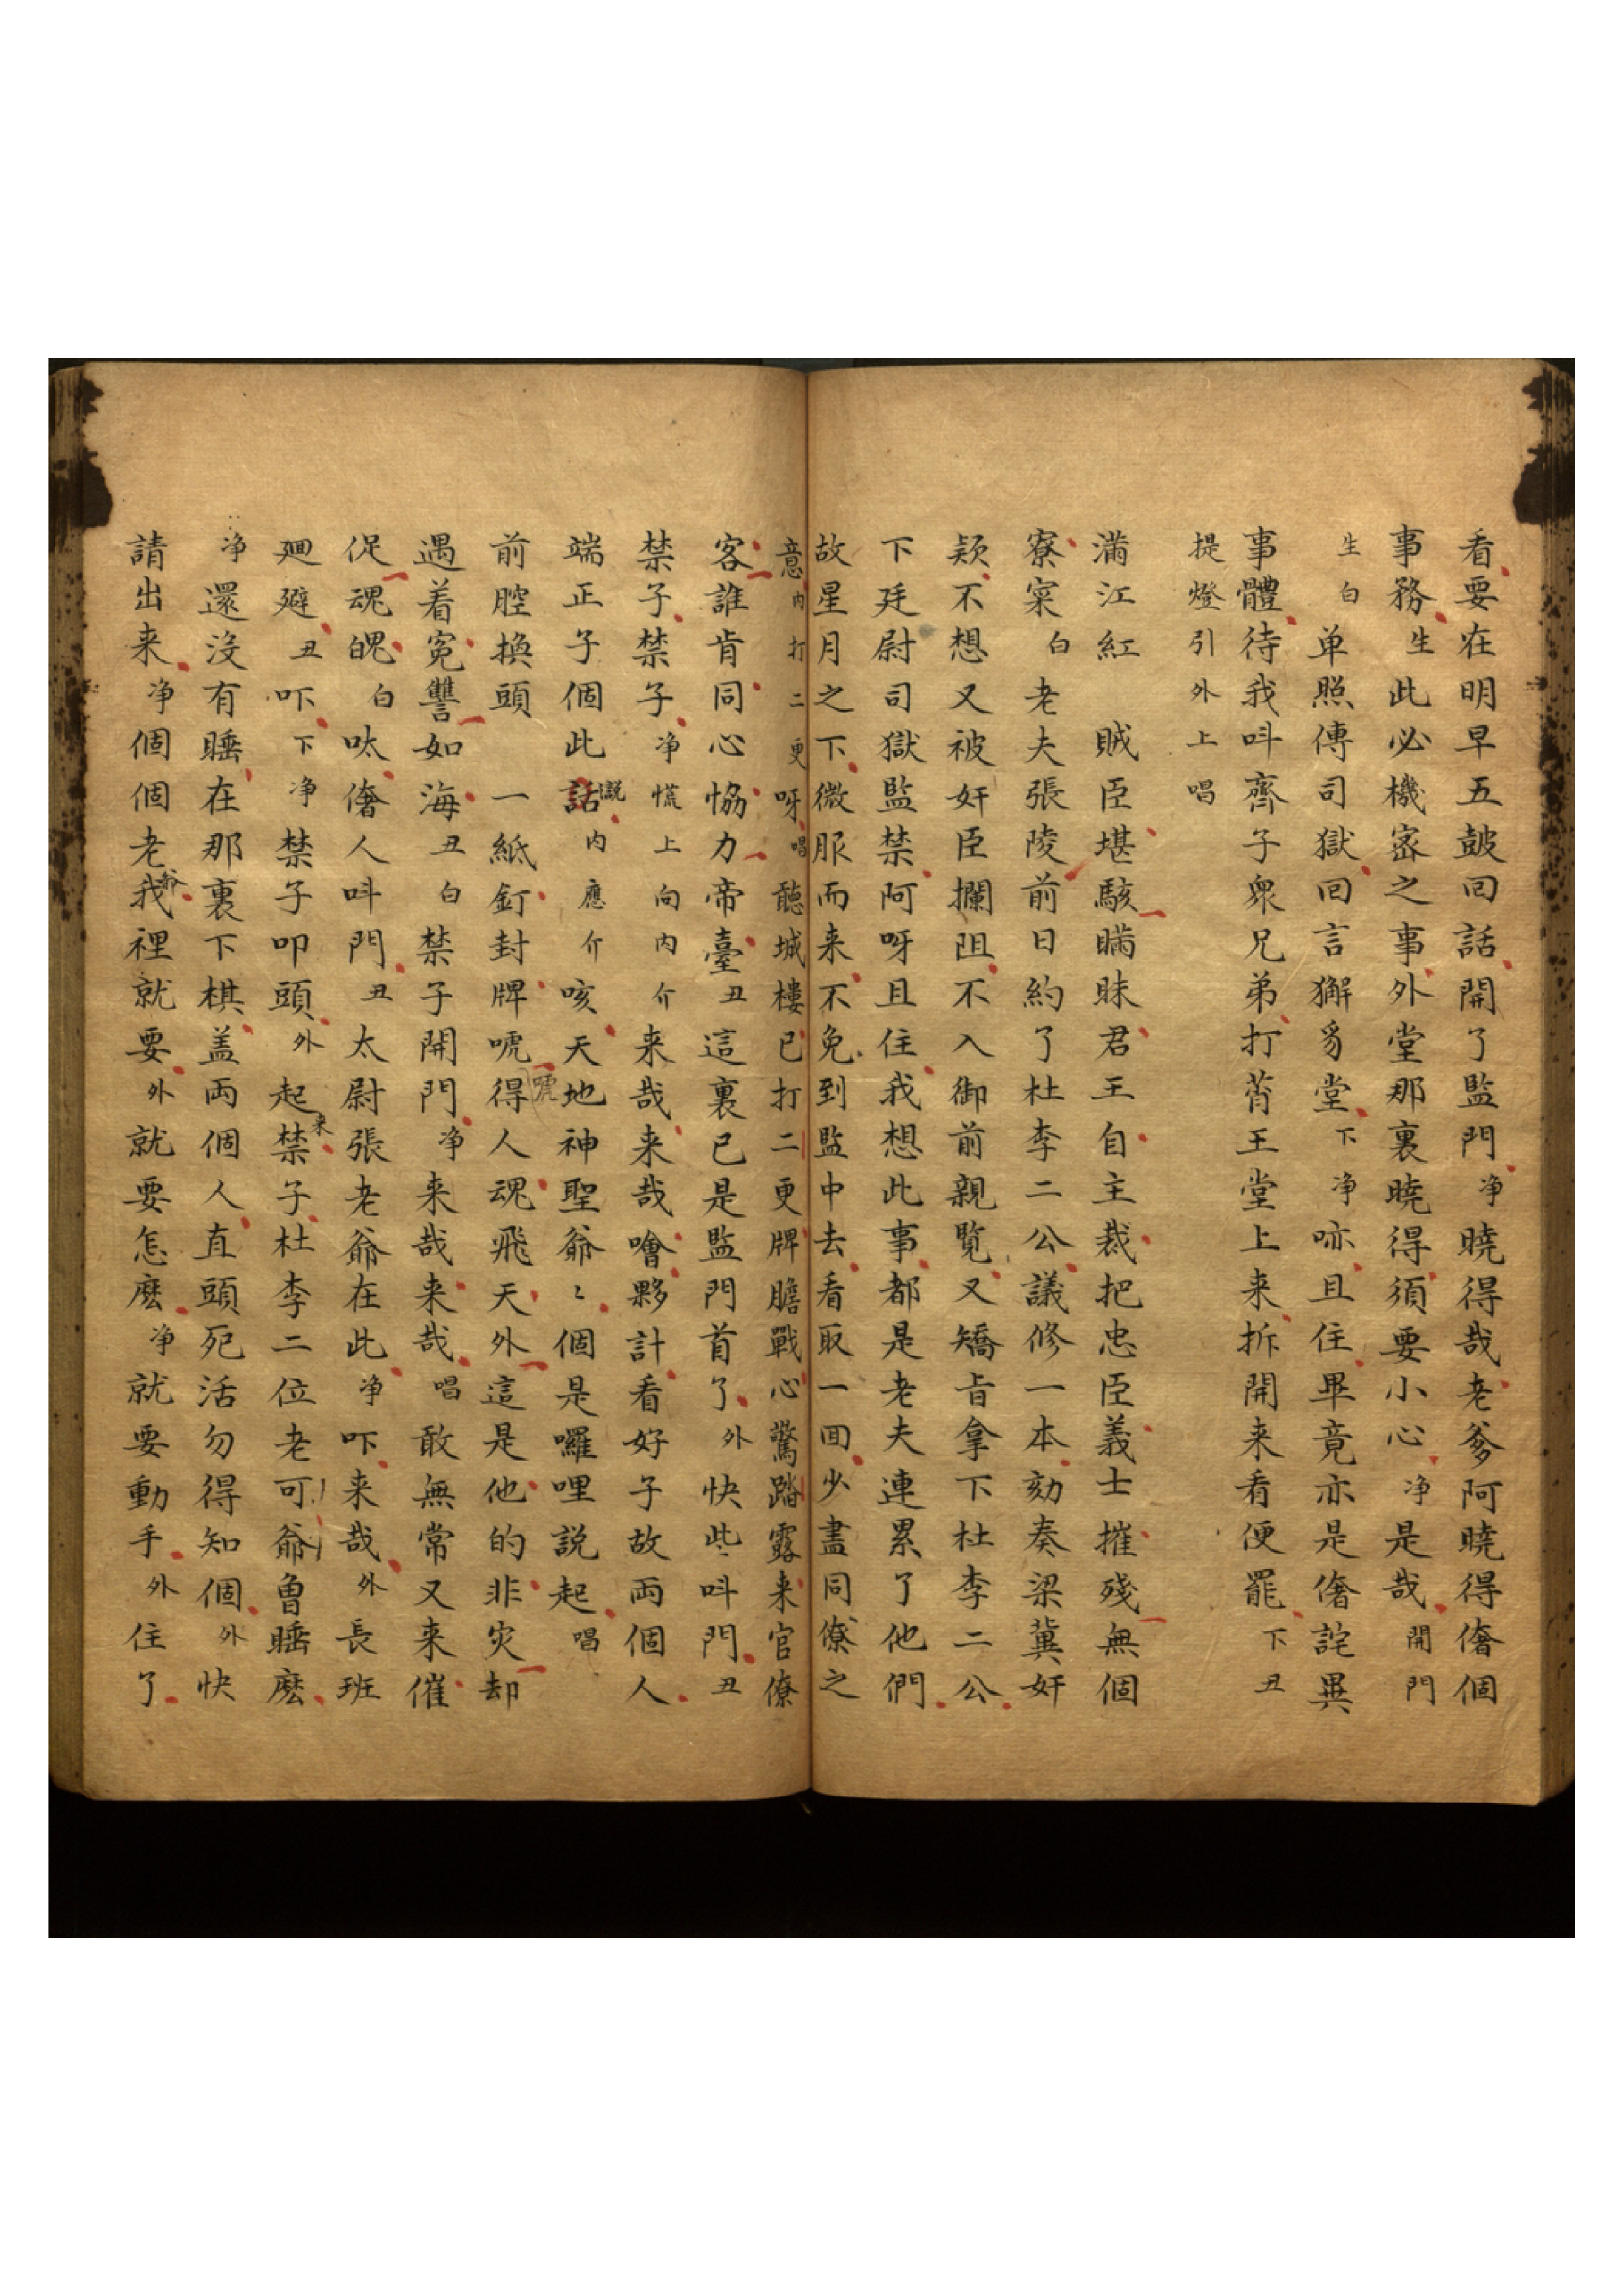 看要在明早五鼓回話開了監門净曉得哉老爹阿曉得僭個
事務生此必機宻之事外堂那裏曉得須要小心净是哉開門
生白单照傳司獄回言獬豸堂下净咏且住畢竟亦是僭詫異
事體待我呌齊子衆兄弟打萮王堂上来拆開来看便罷下丑
提燈引外上唱
滿江紅　賊臣堪駭瞞昧君王自主裁把忠臣義士摧殘無個
寮寀白老夫張陵前日約了杜李二公議修一本劾奏梁冀奸
頴不想又被奸臣攔阻不入御前親覧又矯旨拿下杜李二公
下廷尉司獄監禁阿呀且住我想此事都是老夫連累了他們
故星月之下微服而来不免到監中去看取一囬少盡同僚之
意内打二更呀唱聽城樓已打二更牌膽戰心驚踏露来官僚
客誰肯同心恊力帝臺丑這裏已是監門首了外快些呌門丑
禁子禁子净慌上向内介来哉来哉噲夥計看好子故両個人
端正子個此話説内應介咳天地神聖爺〻個是囉哩説起唱
前腔換頭　一紙釘封牌唬得人魂飛天外這是他的非灾却
遇着寃讐如海丑白禁子開門净来哉来哉唱敢無常又来催
促魂魄白呔僭人呌門丑太尉張老爺在此净吓来哉外長班
廻避丑吓下净禁子叩頭外起来禁子杜李二位老爺可曽睡麽
净還没有睡在那裏下棋盖両個人直頭死活勿得知個外快
請出来净個個老爺我裡就要外就要怎麽净就要動手外住了